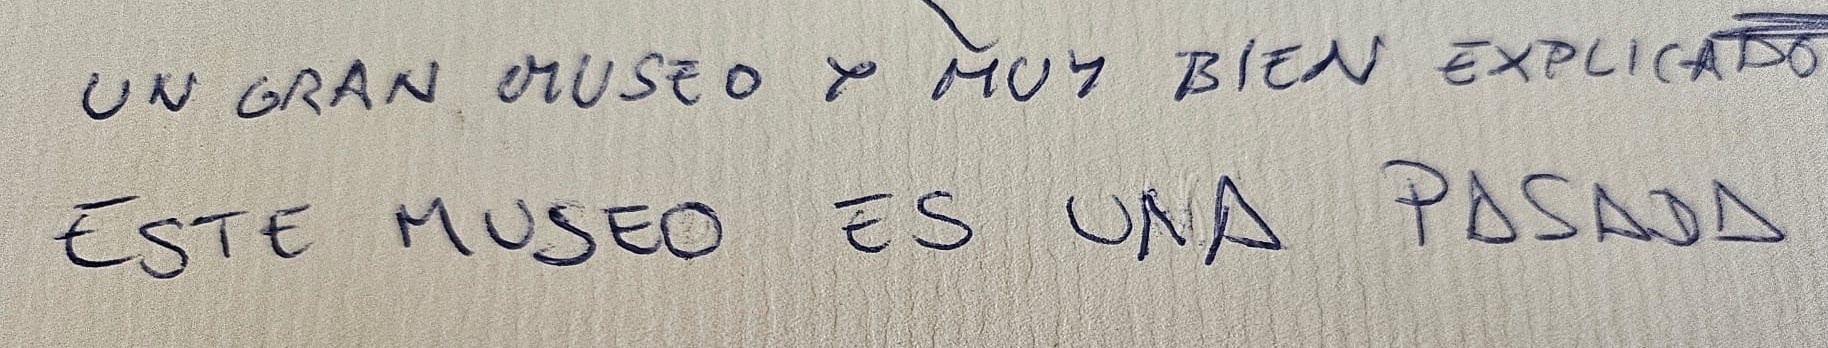 UN GRAN MUSEO Y MUY BIEN EXPLICADO
ESTE MUSEO ES UNA PASADA